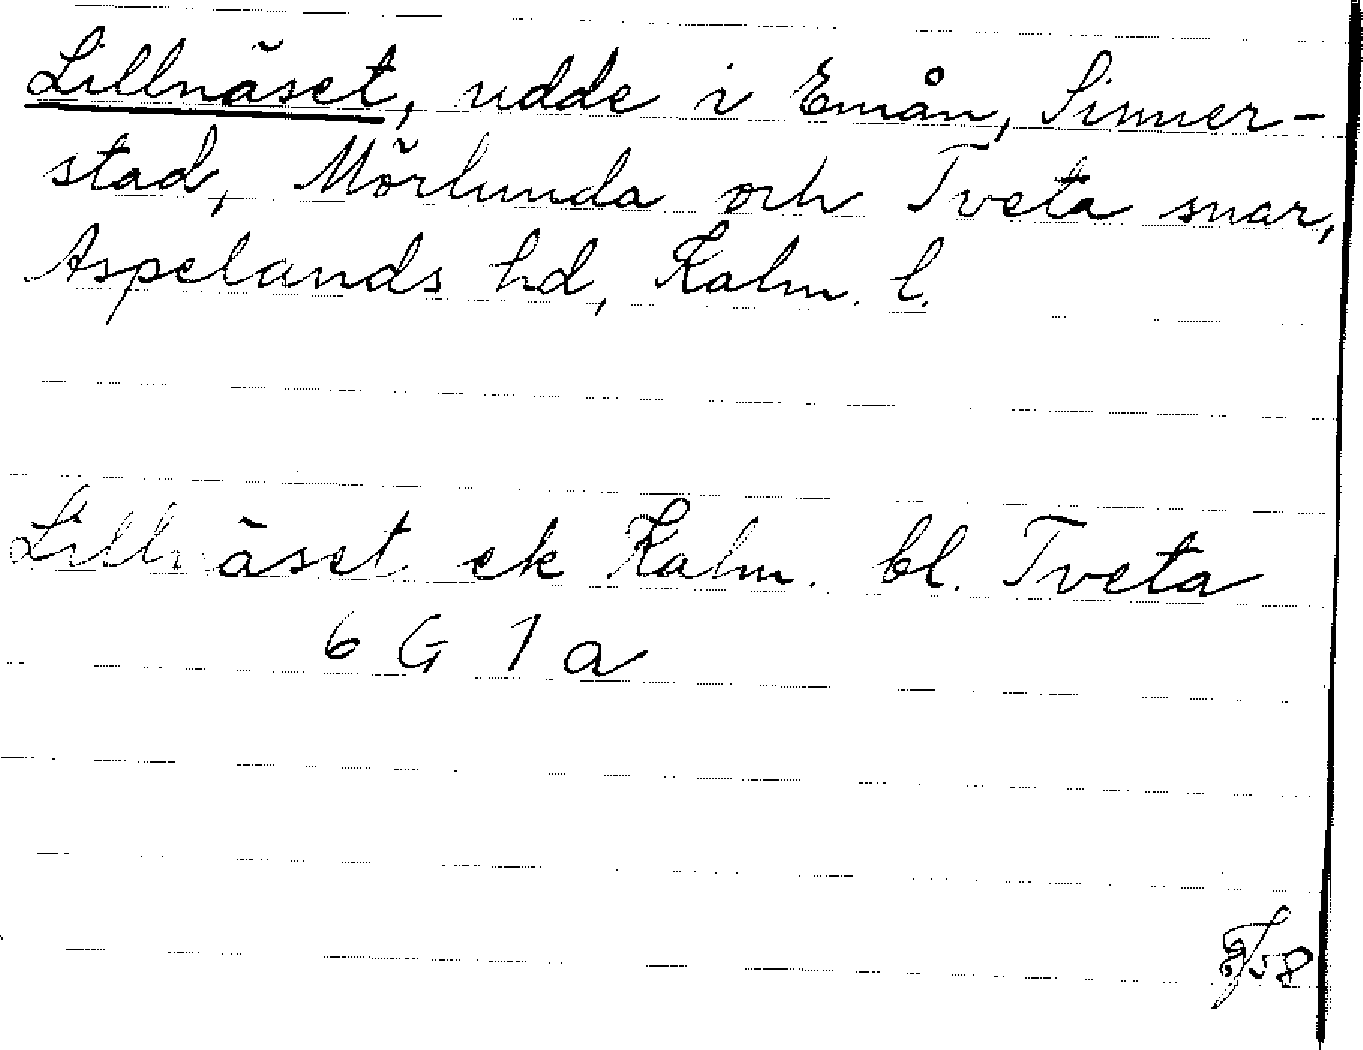 Lillnäset, udde i Emån, Sinner-
stad, Mörlunda och Tveta snar,
Aspelands hd, Kalm. l.
Lillnäset ek Kalm. bl. Tveta
6 G 1 a